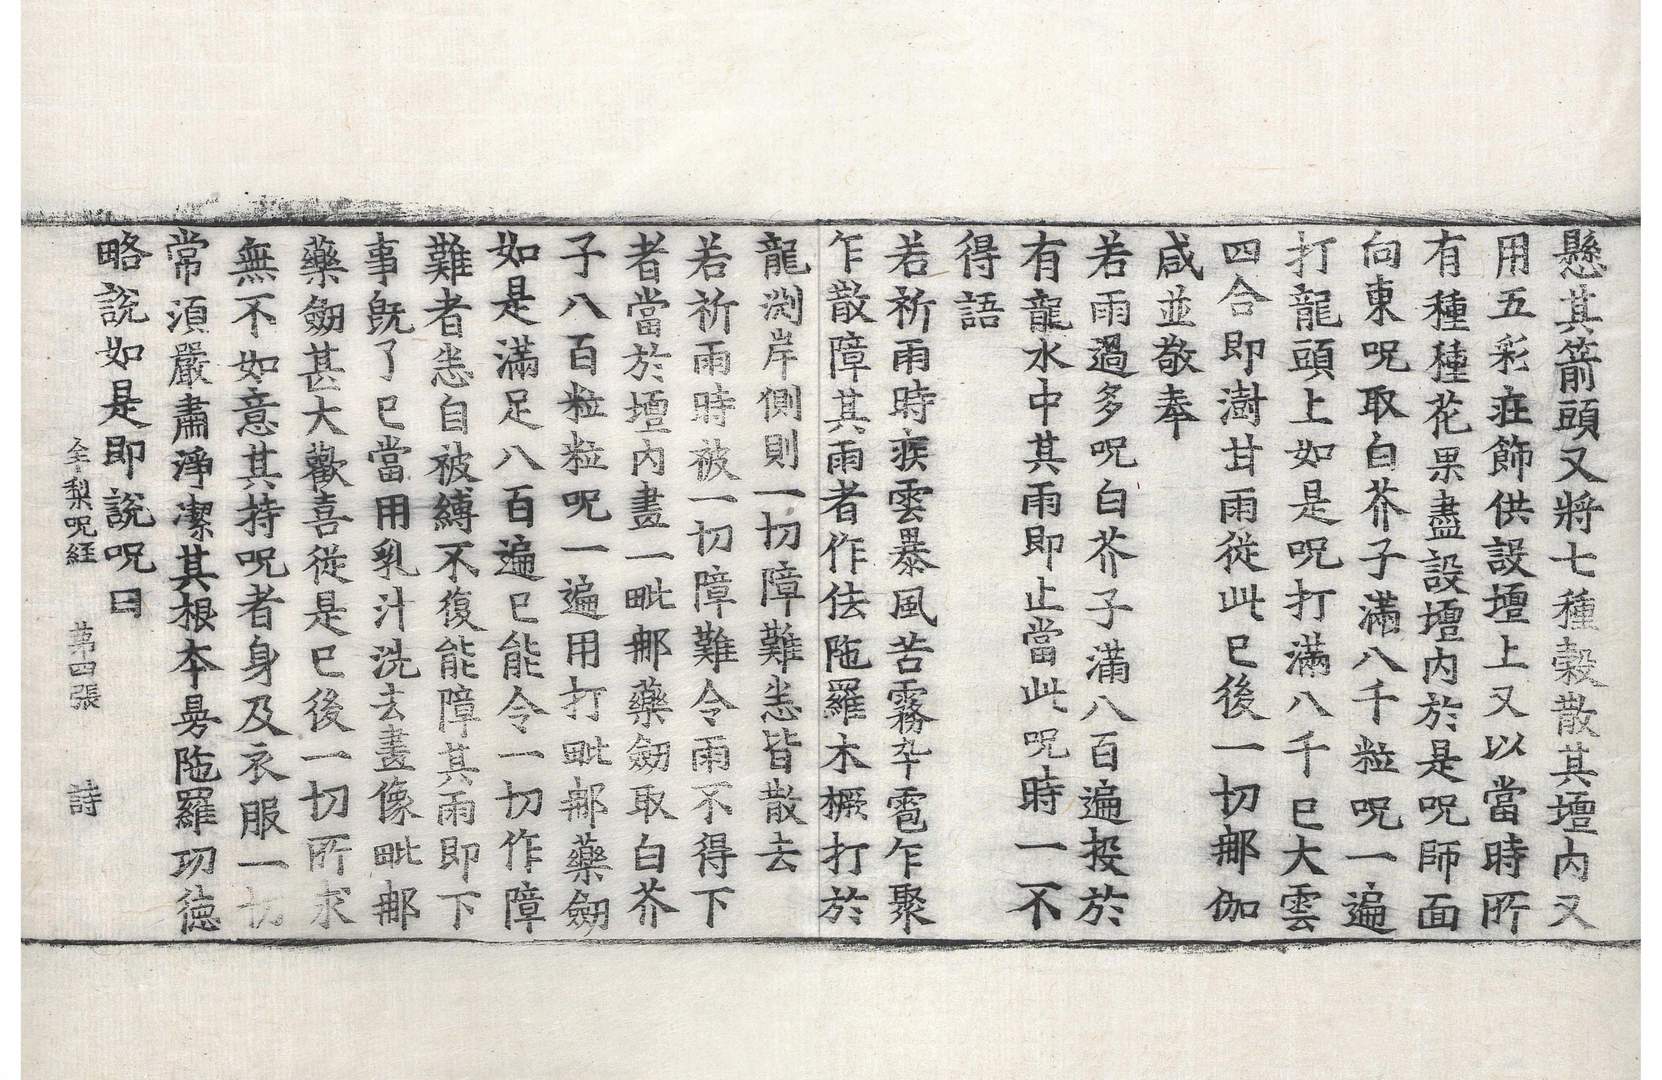 懸其箭頭又將七種穀散其壇内又
用五彩疘飾供設壇上又以當時所
有種種花果盡設壇内於是呪師面
向東呪取白芥子滿八千粒呪一遍
打龍頭上如是呪打滿八千已大雲
四合即澍甘雨從此已後一切那伽
咸並敬奉
若雨過多呪白芥子滿八百遍投於
有龍水中其雨即止當此呪時一不
得語
若祈雨時疾雲暴風苦霧卒雹乍聚
乍散障其雨者作佉陁羅木橛打於
龍渕岸側則一切障難悉皆散去
若祈雨時被一切障難令雨不得下
者當於壇内畫一毗那藥劒取白芥
子八百粒粒呪一遍用打毗那藥劒
如是滿足八百遍已能令一切作障
難者悉自被縛不復能障其雨即下
事旣了已當用乳汁洗去畫像毗那
藥劒甚大歡喜從是已後一切所求
無不如意其持呪者身及衣服一切
常湏嚴肅淨潔其根本曼陁羅功徳
略說如是即說呪曰
全梨呪経 第四張 詩